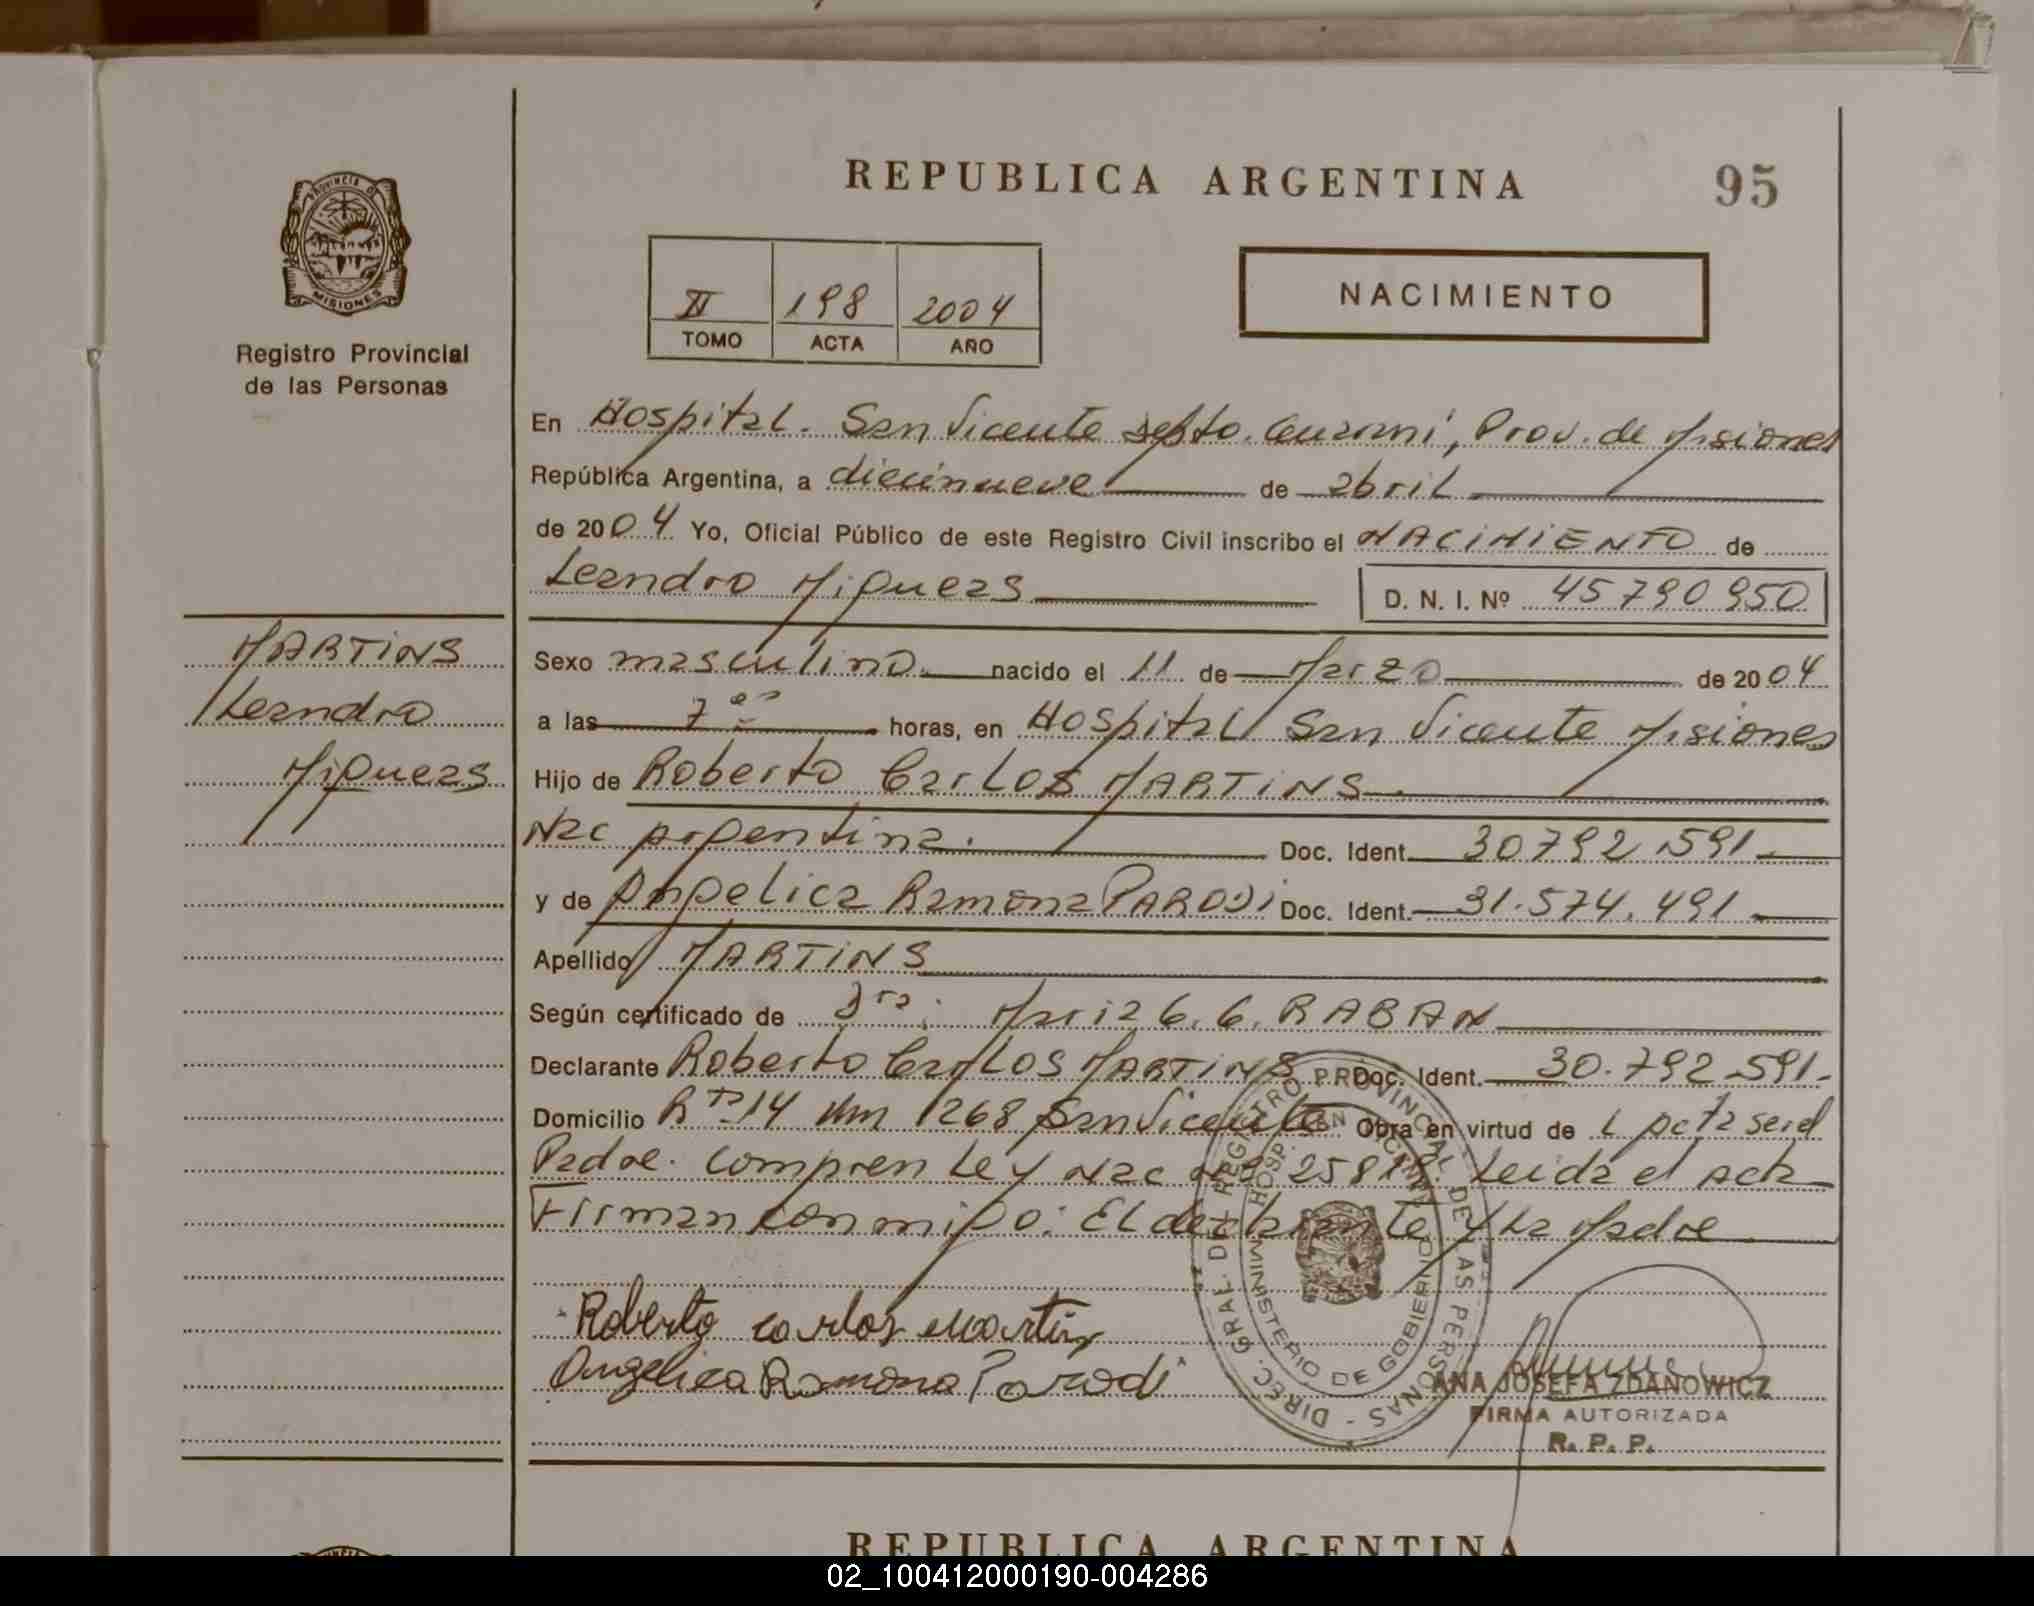 REPUBLICA ARGENTINA
95
PROVINCIA D
MISIONES
Registro Provincial
de las Personas
II 198 2004
TOMO ACTA AÑO
NACIMIENTO
En Hospital. San Vicente depto. Guarani, Prov. de Misiones
República Argentina, a diecinueve de abril
de 2004 Yo, Oficial Público de este Registro Civil inscribo el NACIMIENTO de
Leandro Miqueas D. N. I. Nº 45790950
MARTINS
Leandro
Miqueas
Sexo masculino nacido el 11 de Marzo de 2004
a las 7 horas, en Hospital San Vicente Misiones
Hijo de Roberto Carlos MARTINS
Nac Argentina. Doc. Ident. 30792.591
y de Angelica Ramona PARODI Doc. Ident. 31.574.491
Apellido MARTINS
Según certificado de Dra: Maria G. G. RABAN
Declarante Roberto Carlos MARTINS Doc. Ident. 30.792.591.
Domicilio Rta 14 Km 1268 San Vicente Obra en virtud de
Padre. Ley Nac Leida el Acta
Firman conmigo: El declarante y La Madre
Roberto carlos martins
Angelica Ramona Parodi
DIREC. GRAL. DEL REGISTRO PROVINCIAL DE LAS PERSONAS -
HOSP. SAN VICENTE
MINISTERIO DE GOBIERNO
ANA JOSEFA ZDANOWICZ
FIRMA AUTORIZADA
R. P. P.
REPUBLICA ARGENTINA
02_100412000190-004286